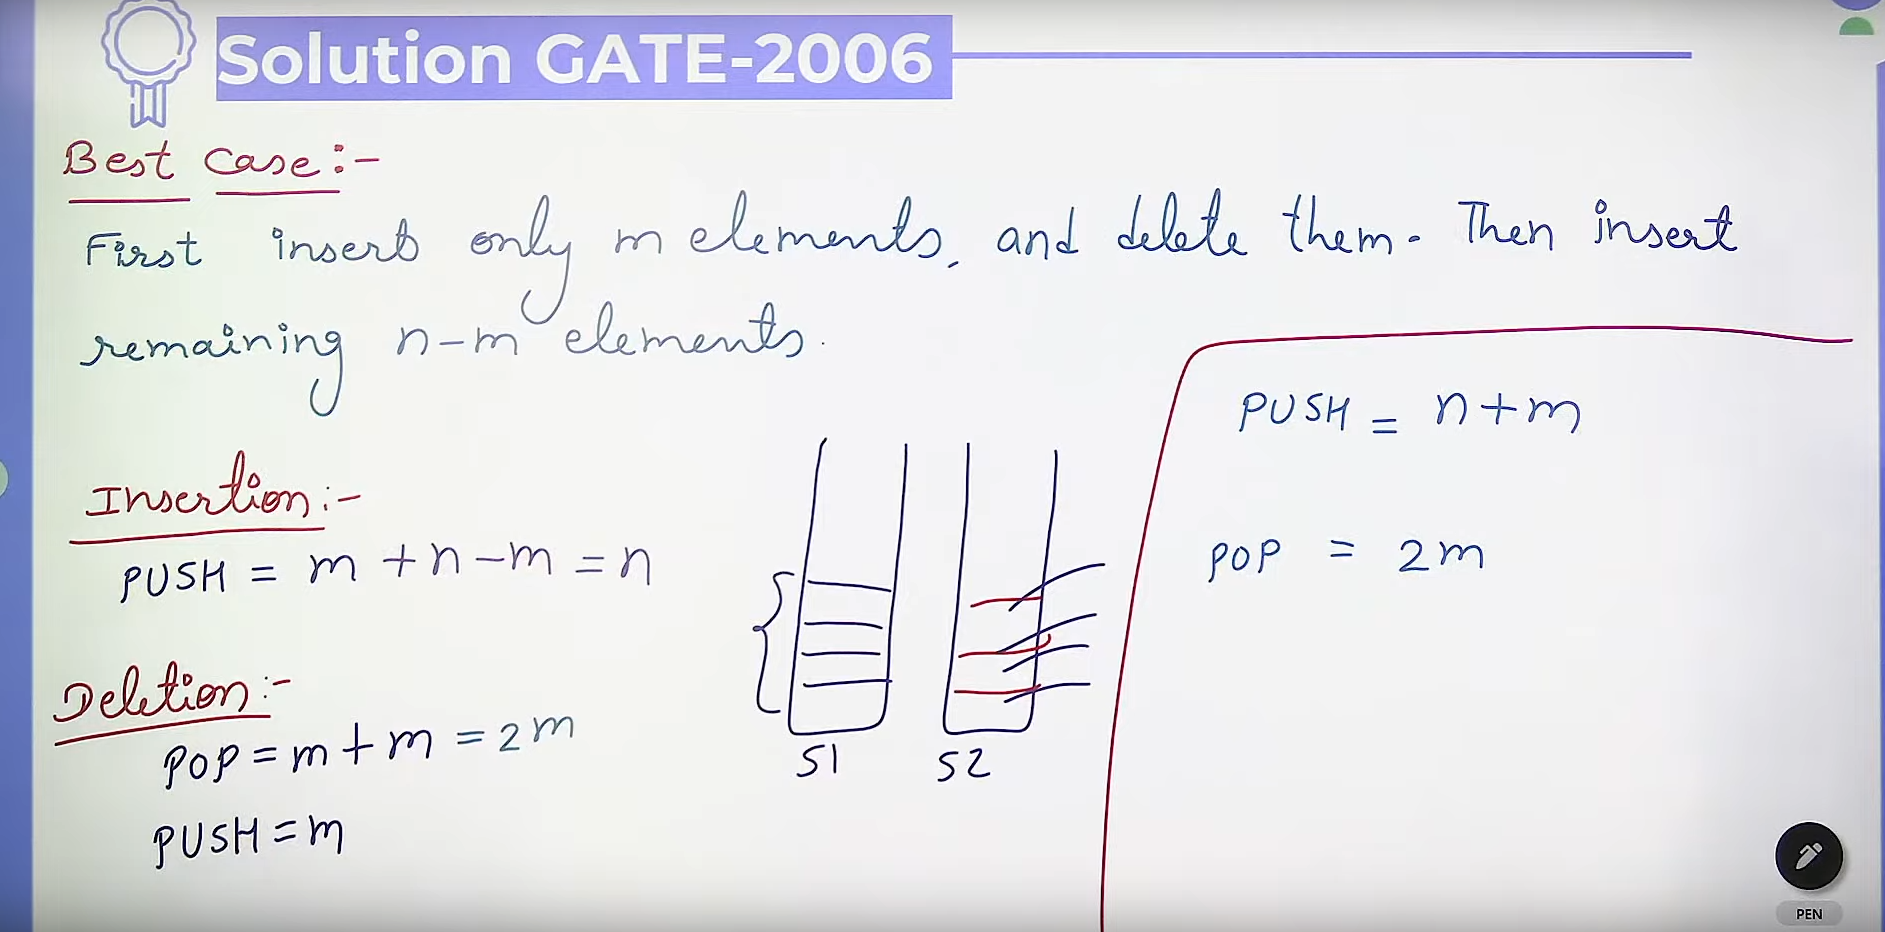 Solution GATE-2006
Best Case:-
First insert only m elements, and delete them. Then insert
remaining n-m elements.
Insertion:-
PUSH = m + n - m = n
Deletion:-
POP = m + m = 2m
PUSH = m
S1 S2
PUSH = n+m
POP = 2m
PEN